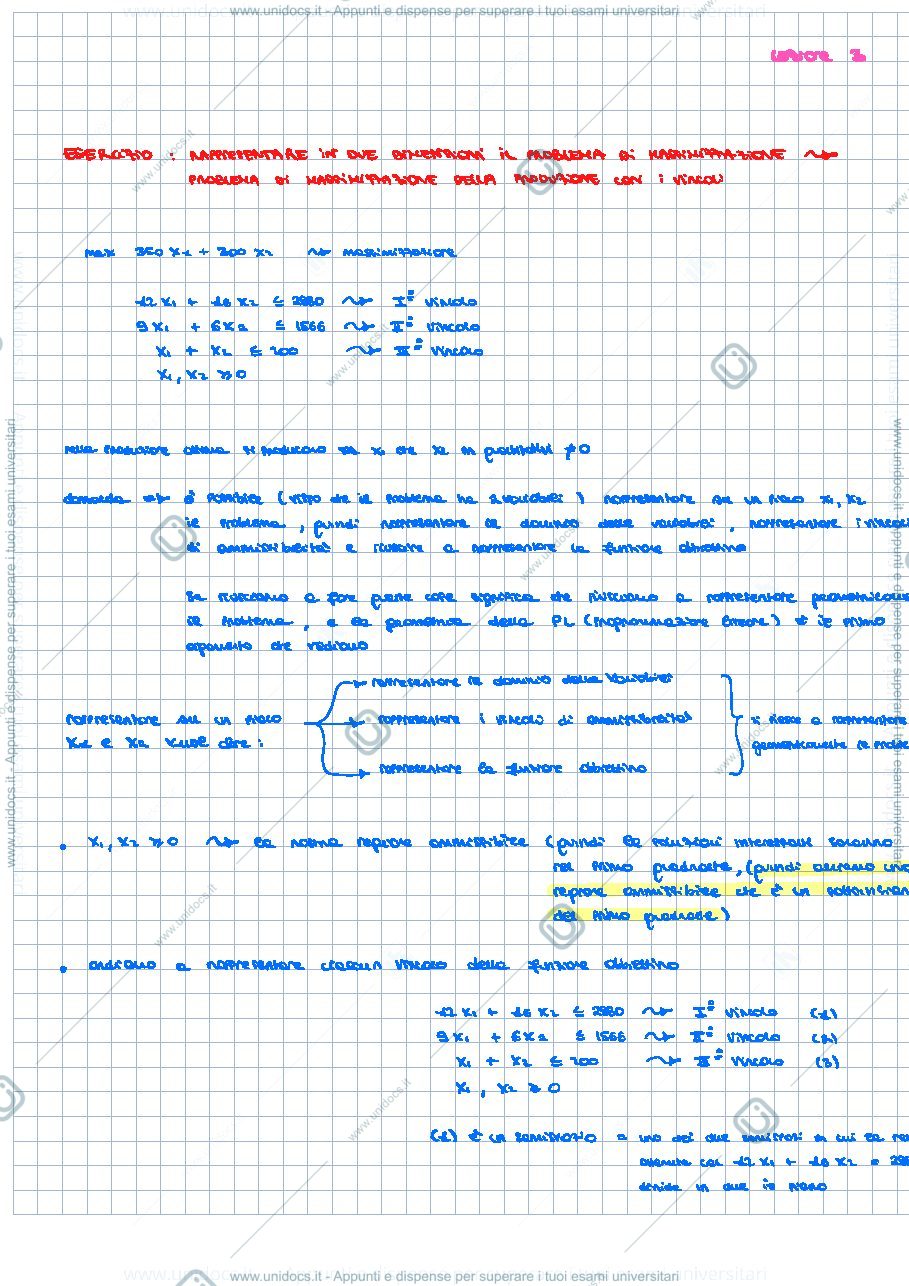 www.unidocs.it - Appunti e dispense per superare i tuoi esami universitari
Lezione 3
ESERCIZIO : RAPPRESENTARE IN DUE DIMENSIONI IL PROBLEMA DI MASSIMIZZAZIONE ~>
PROBLEMA DI MASSIMIZZAZIONE DELLA PRODUZIONE CON I VINCOLI
max 350 X1 + 300 X2 ~> massimizzazione
12 X1 + 16 X2 ≤ 2880 ~> I° VINCOLO
9 X1 + 6 X2 ≤ 1566 ~> II° VINCOLO
X1 + X2 ≤ 200 ~> III° VINCOLO
X1, X2 ≥ 0
nella produzione ottima si producono sia X1 che X2 in quantità ≠ 0
domanda => è possibile (visto che il problema ha 2 variabili) rappresentare su un piano X1, X2
il problema, quindi rappresentare il dominio delle variabili, rappresentare i vincoli
di ammissibilità e riuscire a rappresentare la funzione obiettivo
Se riusciamo a fare queste cose significa che riusciamo a rappresentare
il problema, e la geometria della PL (Programmazione lineare) è il primo
che vediamo
rappresentare su un piano
X1 e X2 vuol dire :
→ rappresentare il dominio delle variabili
→ rappresentare i vincoli di ammissibilità
→ rappresentare la funzione obiettivo
si riesce a rappresentare
geometricamente
• X1, X2 ≥ 0 ~> la nostra regione ammissibile (quindi le soluzioni interessanti saranno
nel primo quadrante, (quindi avremo una
regione ammissibile che è un
del primo quadrante)
• andiamo a rappresentare ciascun vincolo della funzione obiettivo
12 X1 + 16 X2 ≤ 2880 ~> I° VINCOLO (1)
9 X1 + 6 X2 ≤ 1566 ~> II° VINCOLO (2)
X1 + X2 ≤ 200 ~> III° VINCOLO (3)
X1, X2 ≥ 0
(1) è un semispazio = uno dei due semispazi in cui la
ottenuta con 12 X1 + 16 X2 =
divide in due il piano
www.unidocs.it - Appunti e dispense per superare i tuoi esami universitari